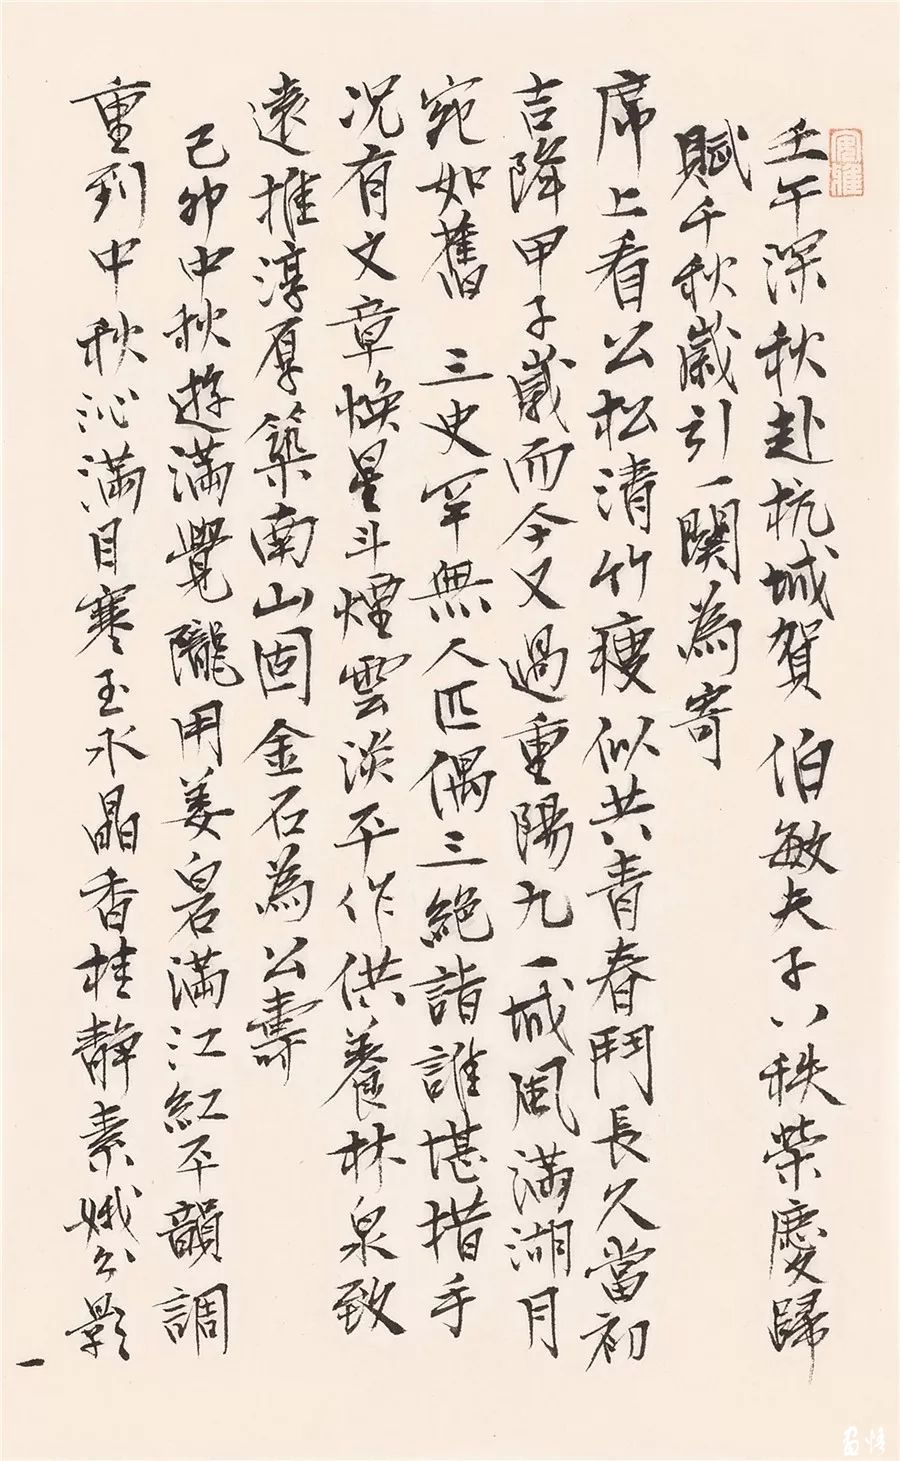 壬午深秋赴杭城賀 伯敏夫子八秩榮慶歸
賦千秋歲引一闋為寄
席上看公松清竹瘦似共青春鬥長久當初
吉降甲子歲而今又過重陽九一城風滿湖月
宛如舊 三史罕無人匹偶三絕詣誰堪措手
況有文章煥星斗煙雲淡平作供養林泉致
遠推淳厚築南山固金石為公壽
己卯中秋遊滿覺隴用姜白石滿江紅平韻調
重到中秋沁滿目寒玉水晶香桂靜素娥分影
一